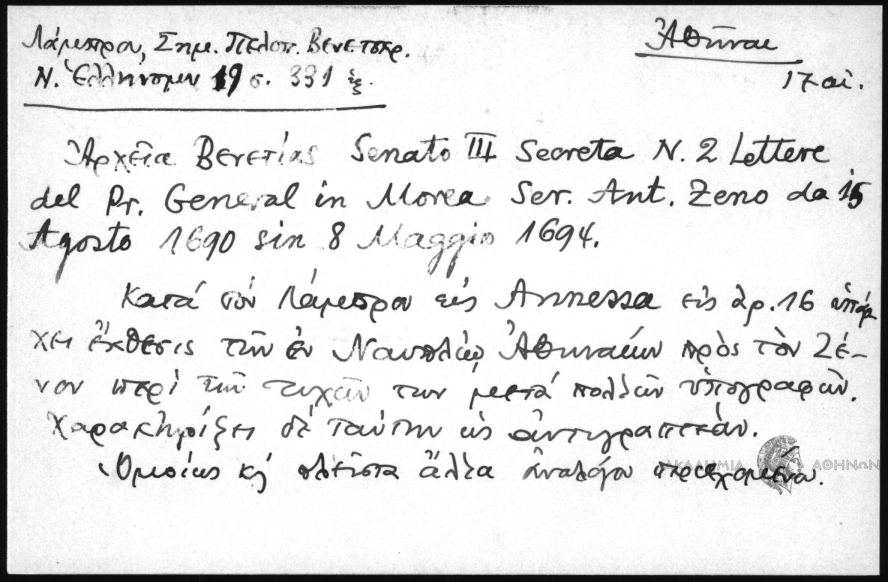 Λάμπρου, Σημ. Πελοπ. Βενετοκρ.
Ἀθῆναι
Ν. Ἑλληνομν 19 σ. 331 ἑξ.
17 αἰ.
Ἀρχεῖα Βενετίας Senato III Secreta N. 2 Lettere
del Pr. General in Morea Ser. Ant. Zeno da 15
Agosto 1690 sin 8 Maggio 1694.
Κατά τόν Λάμπρου εἰς Annessa εἰς ἀρ. 16 ὑπάρ
χει ἔκθεσις τῶν ἐν Ναυπλίῳ Ἀθηναίων πρὸς τὸν Ζέ-
νον περί τῶν τυχῶν των μετά πολλῶν ὑπογραφῶν.
Χαρακτηρίζει δέ ταύτην ὡς
Ὁμοίως κ πλεῖστα ἄλλα ἀναλόγου περιεχομένου.
ΑΚΑΔΗΜΙΑ ΑΘΗΝΩΝ